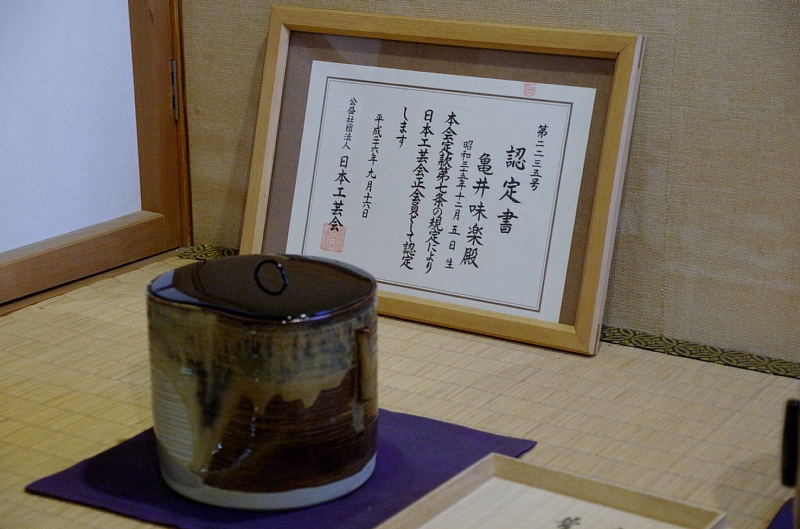 第二二三五号
認定書
亀井味楽殿
昭和三十五年十二月五日生
本会定款第七条の規定により
日本工芸会正会員として認定
します
平成二十六年九月十六日
公益社団法人 日本工芸会